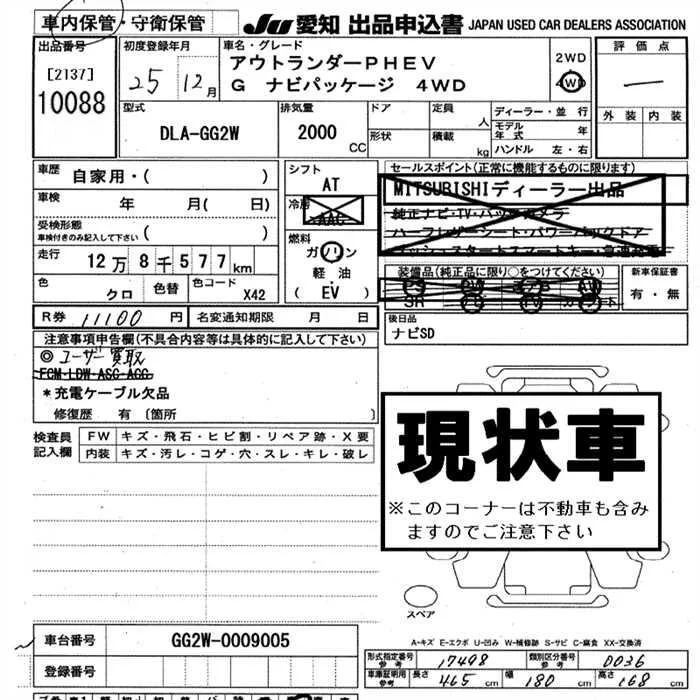 車内保管・守衛保管
JU 愛知 出品申込書 JAPAN USED CAR DEALERS ASSOCIATION
出品番号
[2137]
10088
初度登録年月
25 12月
車名・グレード
アウトランダーPHEV
G ナビパッケージ 4WD
2WD
4WD
評価点
—
外装 内装
型式
DLA-GG2W
排気量
2000
CC
ドア
形状
定員
人
積載
kg
ディーラー・並行
モデル年式 年
ハンドル 左・右
車歴
自家用・( )
車検 年 月( 日)
受検形態
車検付きのみ記入して下さい ( )
走行 12万8千577km
色 クロ
色替
色コード X42
シフト
AT
冷房
AAC
燃料
ガソリン
軽油・
( EV )
セールスポイント(正常に機能するものに限ります)
MITSUBISHIディーラー出品
純正ナビ・TV・バックカメラ
ハーフレザーシート・パワーバックドア
プッシュスタートスマートキー・急速充電
装備品(純正品に限り○をつけてください)
PS PW エアB AW
SR
新車保証書
有・無
R券 11100 円
名変通知期限 月 日
後日品
ナビSD
注意事項申告欄(不具合内容等は具体的に記入して下さい)
◎ ユーザー買取
FCM-LDW-ASC-ACC
*充電ケーブル欠品
修復歴 有 〔箇所 〕
検査員
記入欄
FW キズ・飛石・ヒビ割・リペア跡・X要
内装 キズ・汚レ・コゲ・穴・スレ・キレ・破レ
現状車
※このコーナーは不動車も含み
ますのでご注意下さい
スペア
A-キズ E-エクボ U-凹み W-補修跡 S-サビ C-腐食 XX-交換済
車台番号 GG2W-0009005
登録番号
形式指定番号
参考
17498
類別区分番号
参考
0036
車庫証明用
参考
長さ 465 cm
幅 180 cm
高さ 168 cm